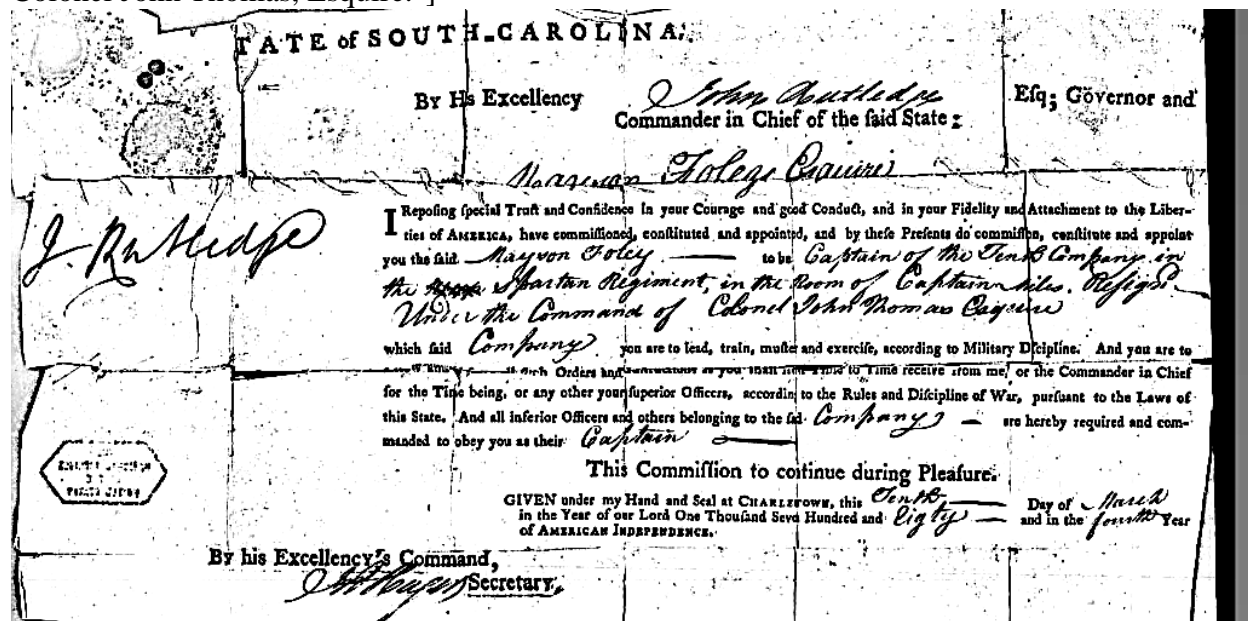 Colonel John Thomas, Esquire." ]
TATE of SOUTH-CAROLINA.
By Hs Excellency John Rutledge Esq; Governor and
Commander in Chief of the said State:
Esquire
J. Rutledge
I Reposing special Trust and Confidence in your Courage and good Conduct, and in your Fidelity and Attachment to the Liber-
ties of AMERICA, have commissioned, constituted and appointed, and by these Presents do commission, constitute and appoint
you the said Mayson Foley to be Captain of the Tenth Company in
the Spartan Regiment, in the Room of Captain Resign
Under the Command of Colonel John Thomas Esquire
which said Company you are to lead, train, muster and exercise, according to Military Discipline. And you are to
such Orders and as you shall from Time to Time receive from me, or the Commander in Chief
for the Time being, or any other your superior Officers, according to the Rules and Discipline of War, pursuant to the Laws of
this State. And all inferior Officers and others belonging to the said Company are hereby required and com-
manded to obey you as their Captain
This Commission to continue during Pleasure.
GIVEN under my Hand and Seal at CHARLESTOWN, this Tenth Day of March
in the Year of our Lord One Thousand Seven Hundred and Eigty and in the fourth Year
of AMERICAN INDEPENDENCE.
By his Excellency's Command,
Secretary.